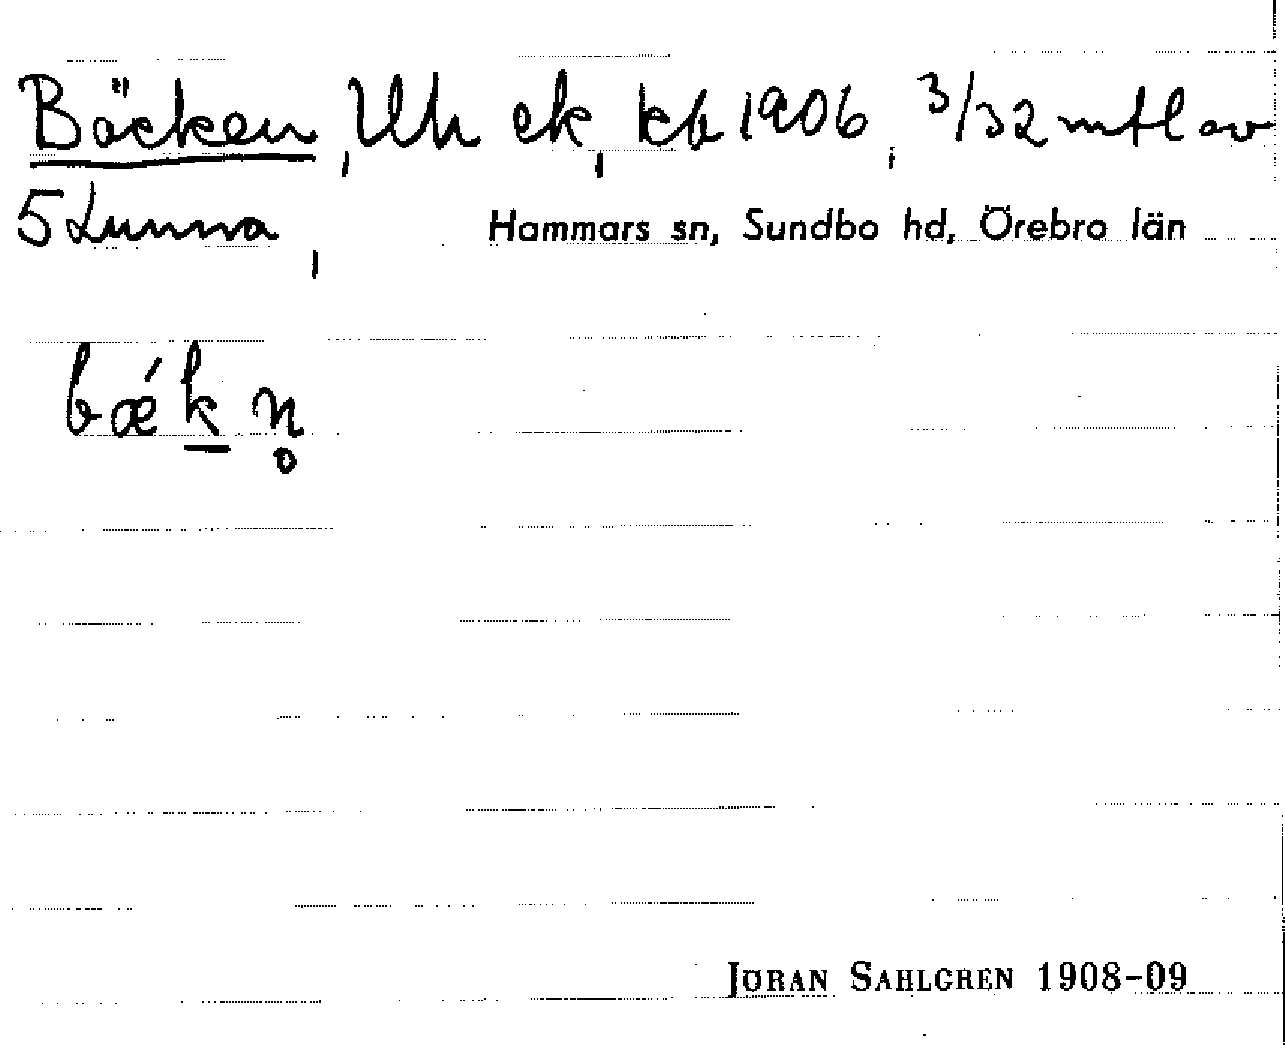 Bäcken, Uh ek, kb 1906, 3/32 mtl av
5 Lunna, Hammars sn, Sundbo hd, Örebro län
bǽk̲n̥
JÖRAN SAHLGREN 1908-09